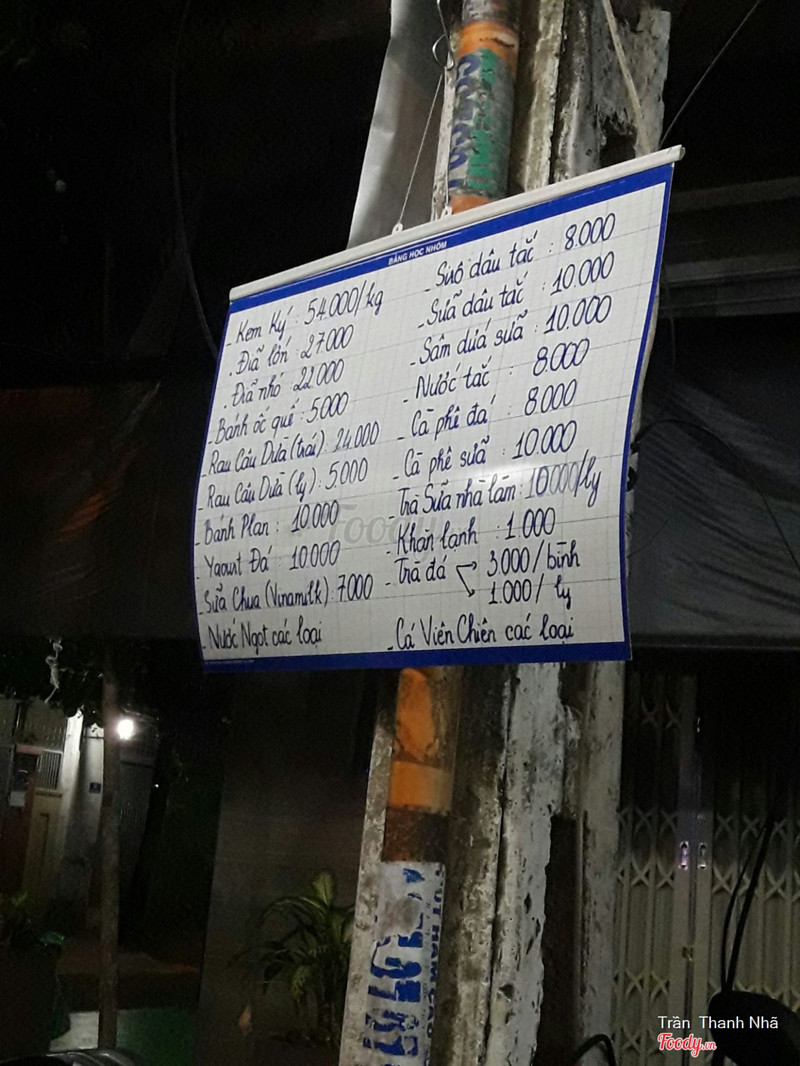 BẢNG HỌC NHÓM
- Kem Ký : 54.000/kg
. Đĩa lớn : 27000
. Đĩa nhỏ : 22.000
- Bánh ốc quế : 5000
- Rau Câu Dừa (trái) : 24.000
- Rau Câu Dừa (ly) : 5000
- Bánh Plan : 10.000
- Yaourt Đá : 10000
- Sữa Chua (Vinamilk) : 7.000
- Nước Ngọt các loại
- Sirô dâu tắc : 8.000
- Sữa dâu tắc : 10.000
- Sâm dứa sữa : 10.000
- Nước tắc : 8.000
- Cà phê đá : 8.000
- Cà phê sữa : 10.000
- Trà Sữa nhà làm : 10000/ly
- Khăn lạnh : 1.000
- Trà đá → 3.000/bình
→ 1.000/ly
- Cá Viên Chiên các loại
Foody
Trần Thanh Nhã
Foody.vn